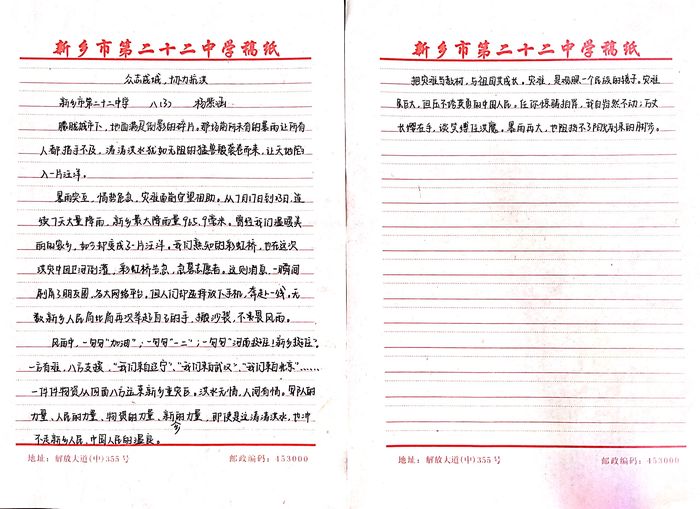 新乡市第二十二中学稿纸
众志成城，协力抗汛
新乡市第二十二中学 八(3) 杨
朦胧城市下，地面满是倒影的碎片。那场前所未有的暴雨让所有
人都措手不及，滔滔洪水犹如无阻的猛兽般袭卷而来，让天地陷
入一片汪洋。
暴雨突至，情势危急，灾难面前守望相助。从7月17日到23日，连
续7天大量降雨，新乡最大降雨量965.9毫米。曾经我们温暖美
丽的家乡，如今却变成了一片汪洋。我们熟知的彩虹桥，也在这次
洪灾中因卫河倒灌，彩虹桥告急，急募志愿者。这则消息，一瞬间
刷屏了朋友圈，各大网络平台。但人们却选择放下手机，奔赴一线。无
数新乡人民同胞再次举起自己的手，搬沙袋，不畏风雨。
风雨中，一句句“加油”；一句句“一二”；一句句“河南挺住！新乡挺住”。
一方有难，八方支援，“我们来自辽宁”、“我们来自武汉”、“我们来自北京”……
一件件物资从四面八方运来新乡重灾区。洪水无情，人间有情。军队的
力量、人民的力量、物资的力量、新乡的力量，即使是这滔滔洪水，也冲
不走新乡人民，中国人民的温良。
地址：解放大道(中)355号 邮政编码：453000
新乡市第二十二中学稿纸
把灾难当教材，与祖国共成长。灾难，是观照一个民族的镜子。灾难
虽巨大，但压不垮英勇的中国人民。任你惊骇拍岸，我自岿然不动；万丈
长缨在手，谈笑缚住洪魔。暴雨再大，也阻挡不了阳光到来的脚步。
地址：解放大道(中)355号 邮政编码：453000